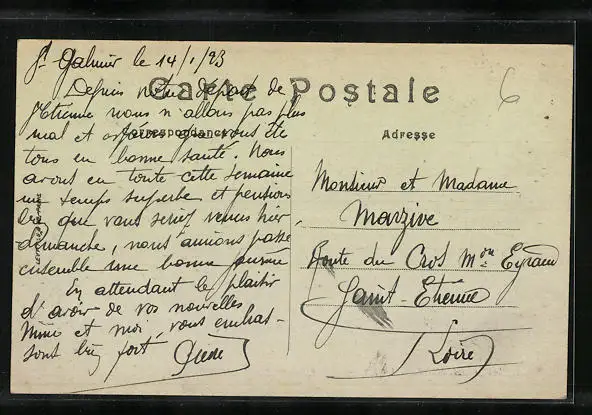 St Galmier le 14/1/23
Carte Postale
Depuis votre départ de
St Etienne nous n'allons pas plus
mal et espérons que vous ête
Correspondance
Adresse
tous en bonne santé. Nous
avons eu toute cette semaine
un temps superbe et pensions
bien que vous seriez venus hier
dimanche, nous aurions passé
ensemble une bonne journée
En attendant le plaisir
d'avoir de vos nouvelles
Mimi et moi, vous embras-
sont bien fort
6
Monsieur et Madame
Route du Cros Mon Eyraud
Saint-Etienne
(Loire)